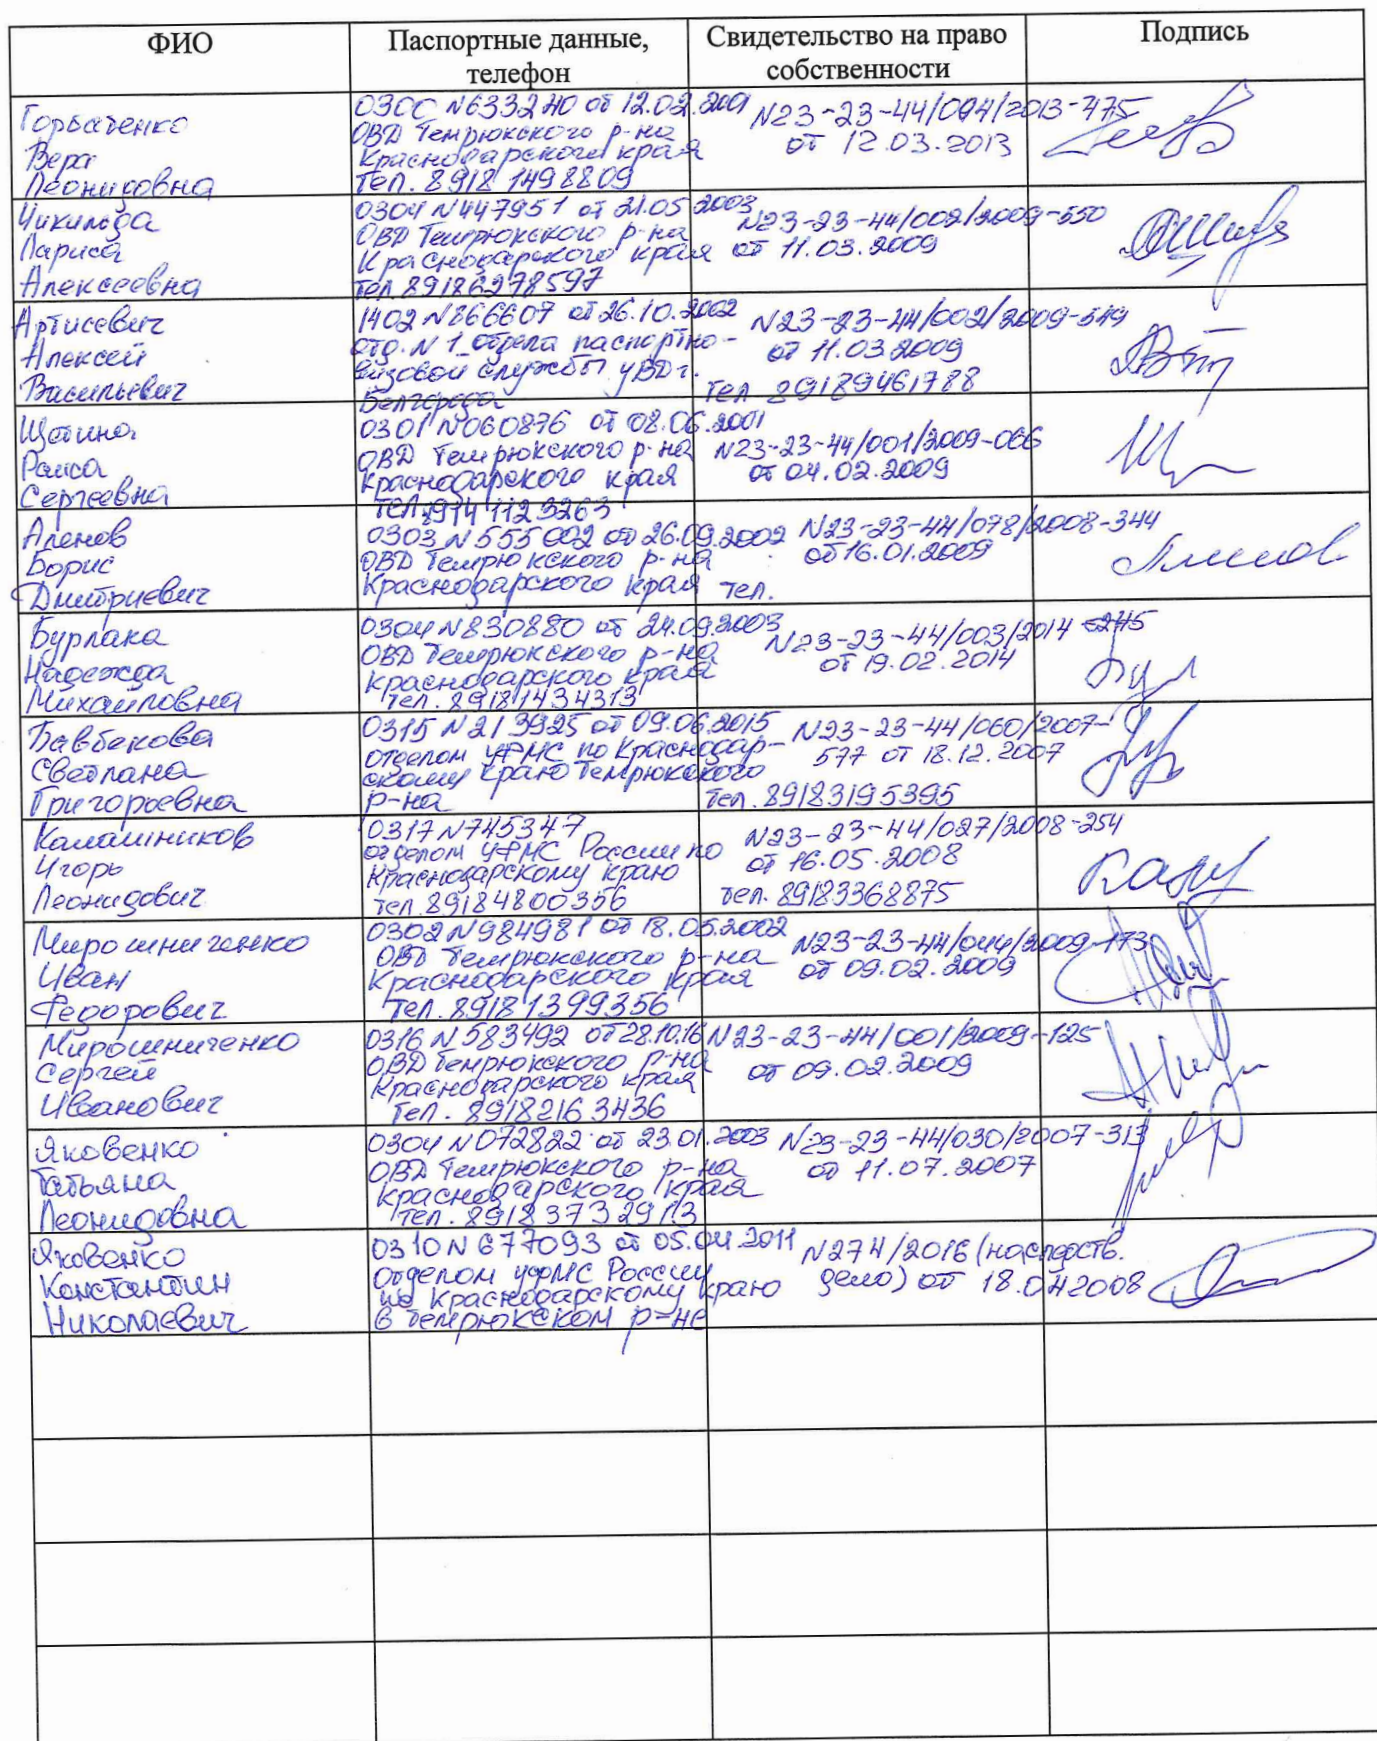 ФИО
Паспортные данные,
телефон
Свидетельство на право
собственности
Подпись
Горбатенко
Вера
Леонидовна
0300 N633240 от 12.02.2001
ОВД Темрюкского р-на
Краснодарского края
Тел. 8918 1498809
N23-23-44/004/2013-775
от 12.03.2013
Чикильда
Лариса
Алексеевна
0304 N447951 от 21.05.2003
ОВД Темрюкского р-на
Краснодарского края
тел. 89186278597
N23-23-44/002/2009-550
от 11.03.2009
Артисевич
Алексей
Васильевич
1402 N866607 от 26.10.2002
отд. N 1 отдела паспортно-
визовой службы УВД г.
Белгорода
N23-23-44/002/2009-549
от 11.03.2009
Тел 89189461788
Щетина
Раиса
Сергеевна
0301 N060876 от 08.06.2001
ОВД Темрюкского р-на
Краснодарского края
тел. 8914 1123263
N23-23-44/001/2009-066
от 04.02.2009
Аленов
Борис
Дмитриевич
0303 N 555002 от 26.09.2002
ОВД Темрюкского р-на
Краснодарского края
N23-23-44/078/2008-344
от 16.01.2009
тел.
Бурлака
Надежда
Михайловна
0304 N830880 от 24.09.2003
ОВД Темрюкского р-на
Краснодарского края
тел. 89181434313
N23-23-44/003/2014-245
от 19.02.2014
Бавбекова
Светлана
Григорьевна
0315 N213925 от 09.06.2015
отделом УФМС по Краснодар-
скому краю Темрюкского
р-на
N23-23-44/060/2007-
577 от 18.12.2007
Тел. 89183195395
Калашников
Игорь
Леонидович
0317 N745347
отделом УФМС России по
Краснодарскому краю
тел. 89184800356
N23-23-44/027/2008-254
от 16.05.2008
тел. 89183368875
Мирошниченко
Иван
Федорович
0302 N984981 от 18.05.2002
ОВД Темрюкского р-на
Краснодарского края
Тел. 89181399356
N23-23-44/044/2009-173
от 09.02.2009
Мирошниченко
Сергей
Иванович
0316 N 583492 от 28.10.16
ОВД Темрюкского р-на
Краснодарского края
Тел. 89182163436
N23-23-44/001/2009-125
от 09.02.2009
Яковенко
Татьяна
Леонидовна
0304 N072822 от 23.01.2003
ОВД Темрюкского р-на
Краснодарского края
тел. 89183732913
N23-23-44/030/2007-313
от 11.07.2007
Яковенко
Константин
Николаевич
0310 N 677093 от 05.04.2011
Отделом УФМС России
по Краснодарскому краю
в Темрюкском р-не
N274/2016 (наследств.
дело) от 18.04.2008